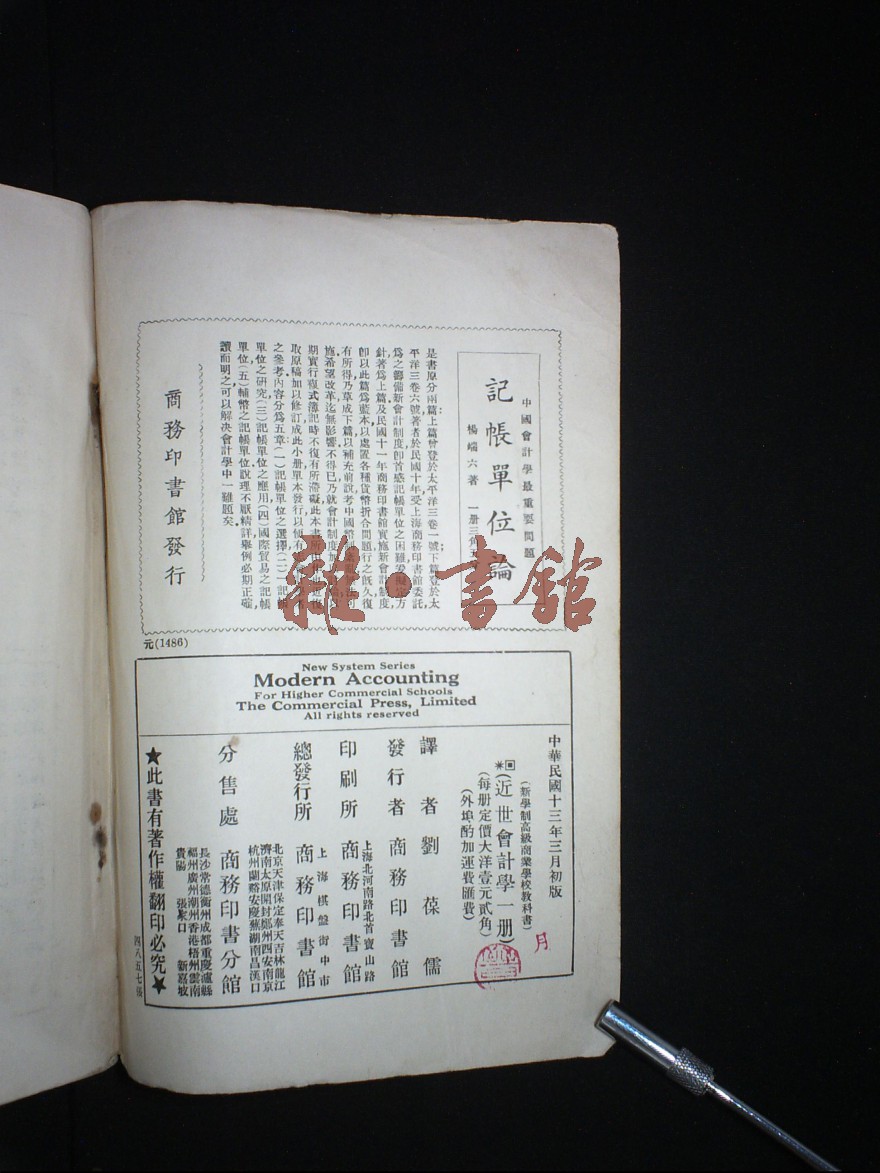 中國會計學最重要問題
記帳單位論
楊端六著 一册三角五
是書原分兩篇上篇曾登於太平洋三卷一號下篇登於太
平洋三卷六號著者於民國十年受上海商務印書館委託,
爲之籌備新會計制度卽首感記帳單位之困難爰擬定方
針著爲上篇及民國十一年商務印書館實施新會計制度
卽以此篇爲藍本以處置各種貨幣折合問題行之旣久復
有所得乃草成下篇以補充前說考中國幣制
施希望改革迄無影響不得已乃就會計制度加
期實行複式簿記時不復有所滯礙此本書所
取原稿加以修訂成此小册單本發行以便有
之參考內容分爲五章(一)記帳單位之選擇(二)記帳
單位之研究(三)記帳單位之應用(四)國際貿易之記帳
單位(五)輔幣之記帳單位說理不厭精詳舉例必期正確,
讀而明之可以解决會計學中一難題矣
商務印書館發行
雜·書館
元(1486)
New System Series
Modern Accounting
For Higher Commercial Schools
The Commercial Press, Limited
All rights reserved
中華民國十三年三月初版
(新學制高級商業學校敎科書)
(近世會計學一册)
(每册定價大洋壹元貳角)
(外埠酌加運費匯費)
月
譯者 劉葆儒
發行者 商務印書館
上海北河南路北首寶山路
印刷所 商務印書館
上海棋盤街中市
總發行所 商務印書館
北京天津保定奉天吉林龍江
濟南太原開封鄭州西安南京
杭州蘭谿安慶蕪湖南昌漢口
分售處 商務印書分館
長沙常德衡州成都重慶瀘縣
福州廣州潮州香港梧州雲南
貴陽 張家口 新嘉坡
★此書有著作權翻印必究★
四八五七張